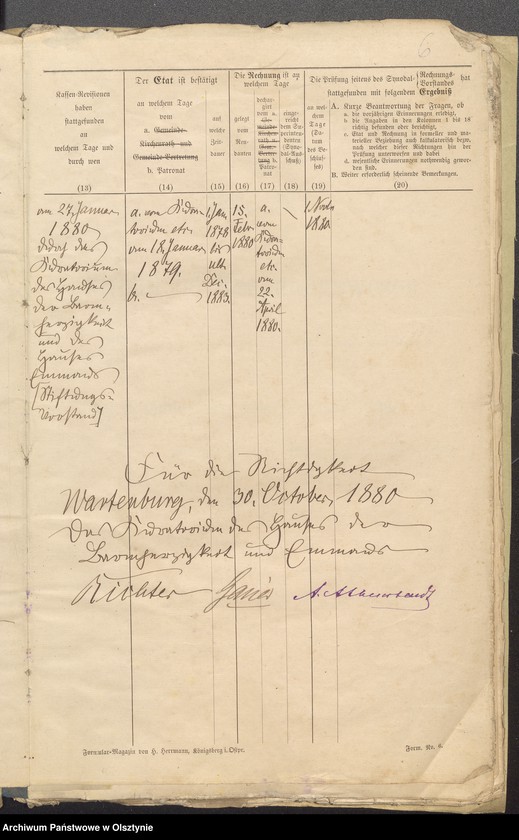 6
Kassen-Revisionen
haben
stattgefunden
an
welchem Tage und
durch wen
(13)
Der Etat ist bestätigt
an welchem Tage
vom
a. Gemeinde-
Kirchenrath und
Gemeinde-Vertretung
b. Patronat
(14)
auf
welche
Zeit-
dauer
(15)
Die Rechnung ist an
welchem Tage
gelegt
vom
Ren-
danten
(16)
dechar-
girt
vom a.
Ge-
meinde-
Kirchen-
rath u.
Gem.-
Vertre-
tung b.
Patro-
nat
(17)
einge-
reicht
dem Su-
perinten-
denten
(Syno-
dal-Aus-
schuß)
(18)
Die Prüfung seitens des Synodal- Rechnungs-
Vorstandes hat
stattgefunden mit folgendem Ergebniß
an wel-
chem
Tage
(Da-
tum
des Be-
schlus-
ses)
(19)
A. Kurze Beantwortung der Fragen, ob
a. die vorjährigen Erinnerungen erledigt,
b. die Angaben in den Kolumnen 1 bis 18
richtig befunden oder berichtigt,
c. Etat und Rechnung in formeller und ma-
terieller Beziehung auch kalkulatorisch bezw.
nach welcher dieser Richtungen hin der
Prüfung unterworfen und dabei
d. wesentliche Erinnerungen nothwendig gewor-
den sind.
B. Weiter erforderlich scheinende Bemerkungen.
(20)
am 27. Januar
1880
durch das
Kuratorium
des Hauses
der Barm-
herzigkeit
und des
Hauses
Emmaus
[Stiftungs-
Vorstand]
a. vom Kura-
torium etc.
vom 18. Januar
1879.
b. —
1. Jan.
1878
bis
ult.
Dec.
1883.
15.
Febr.
1880
a.
vom
Kura-
torium
etc.
vom
22.
April
1880.
1. Novbr
1880.
Für die Richtigkeit
Wartenburg, den 30. October 1880
Das Kuratorium des Hauses der
Barmherzigkeit und Emmaus
Richter
Formular-Magazin von H. Herrmann, Königsberg i. Ostpr.
Form. No. 6.
Archiwum Państwowe w Olsztynie